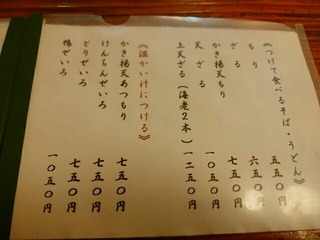 《つけて食べるそば・うどん》
もり 五五〇円
ざる 六五〇円
かき揚天もり 七五〇円
天ざる 一〇五〇円
上天ざる（海老2本） 一二五〇円
《温かい汁につける》
かき揚天あつもり 七五〇円
けんちんせいろ 七五〇円
とりせいろ 七五〇円
鴨せいろ 一〇五〇円